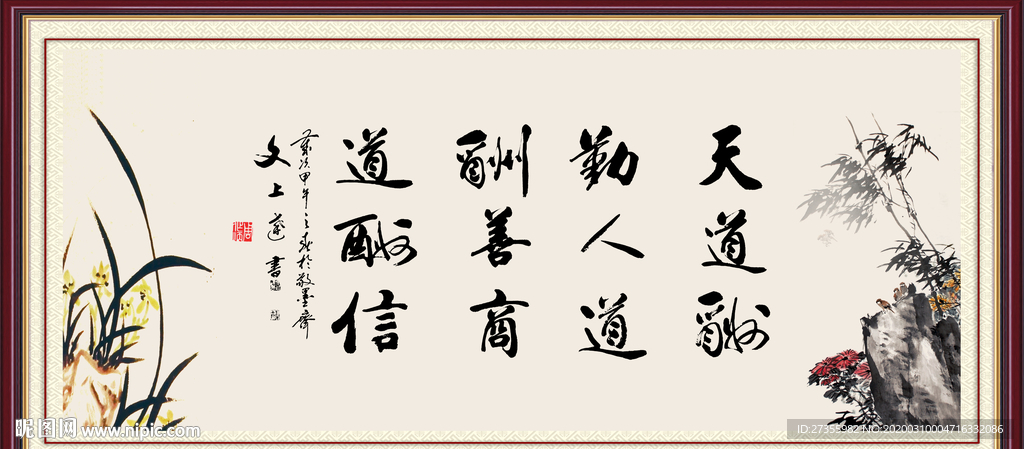 天道酬
勤人道
酬善商
道酬信
岁次甲午之春於敬墨斋
文上莲书
昵图网 www.nipic.com
ID:27355982 NO:20200310004716332086